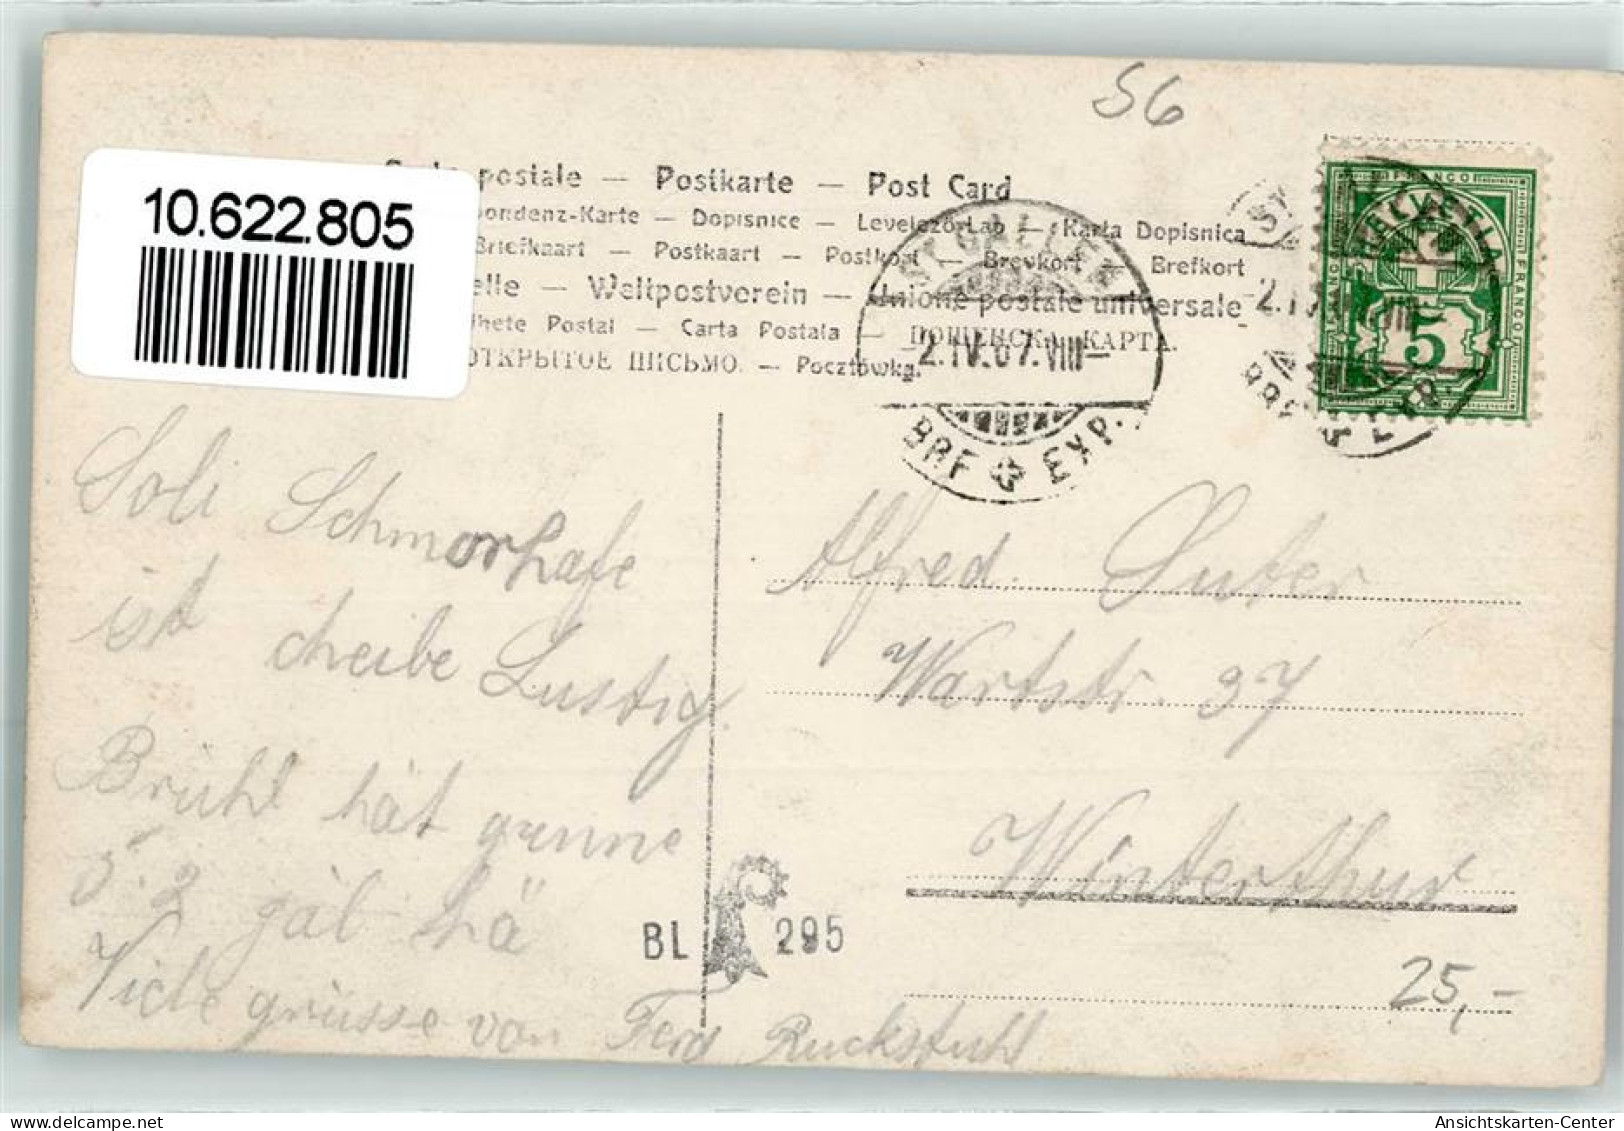 56
10.622.805
postale — Postkarte — Post Card
pondenz-Karte — Dopisnice — Levelező-Lap — Karta Dopisnica
Briefkaart — Postkaart — Postkort — Brevkort — Brefkort
elle — Weltpostverein — Unione postale universale
hete Postal — Carta Postala — ПОШЕНСКА КАРТА.
ОТКРЫТОЕ ПИСЬМО. — Pocztówka.
ST. GALLEN
2.IV.07.VIII—
BRF EXP.
FRANCO
HELVETIA
FRANCO
5
Soli Schmorhafe
ist cheibe Lustig.
Brühl hät gunne
5.2 gäl hä
Viele grüsse von Ferd Ruckstuhl
Alfred Suter
Wartstr. 37
Winterthur
BL 295
25,-
Ansichtskarten-Center